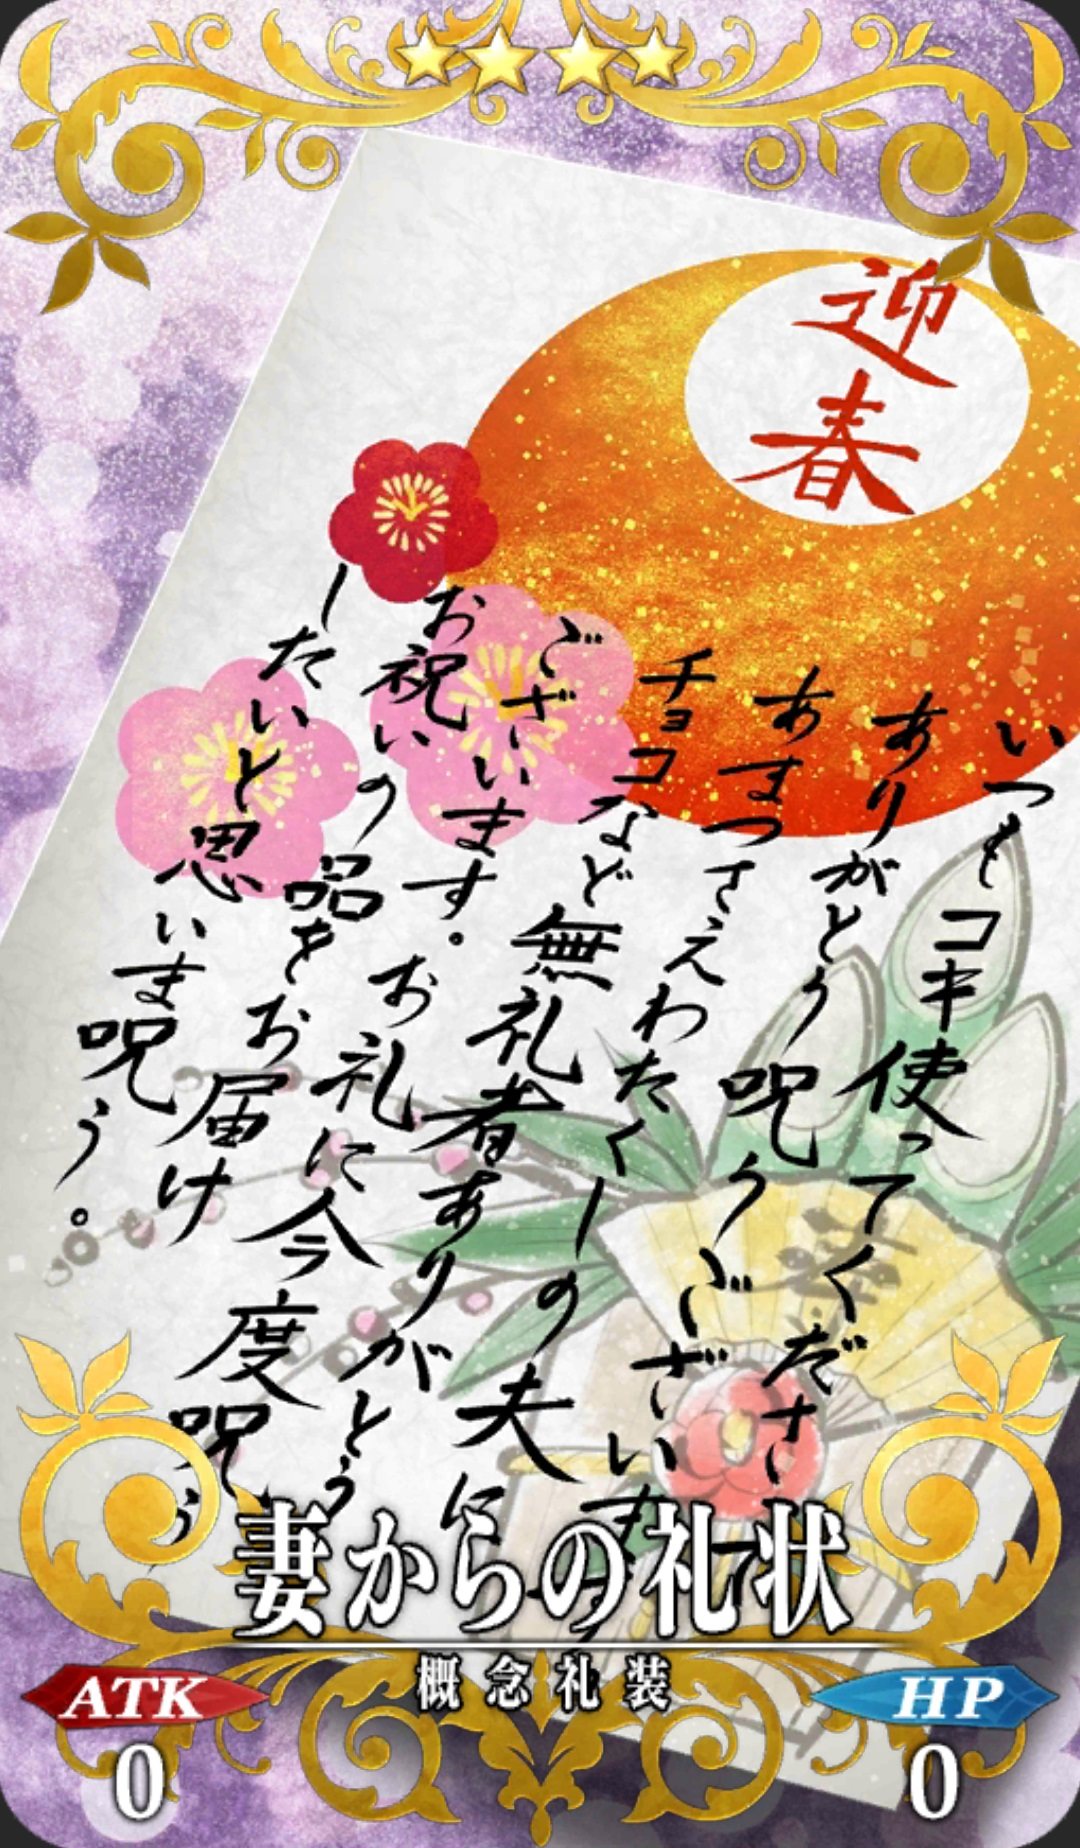 迎春
いつもコキ使ってくださ
ありがとう呪うございま
あまつさえわたくしの夫に
チョコなど無礼者ありがとう
ございます。お礼に今度呪う
お祝いの品をお届け
したいと思いま呪う。
妻からの礼状
概念礼装
ATK
0
HP
0